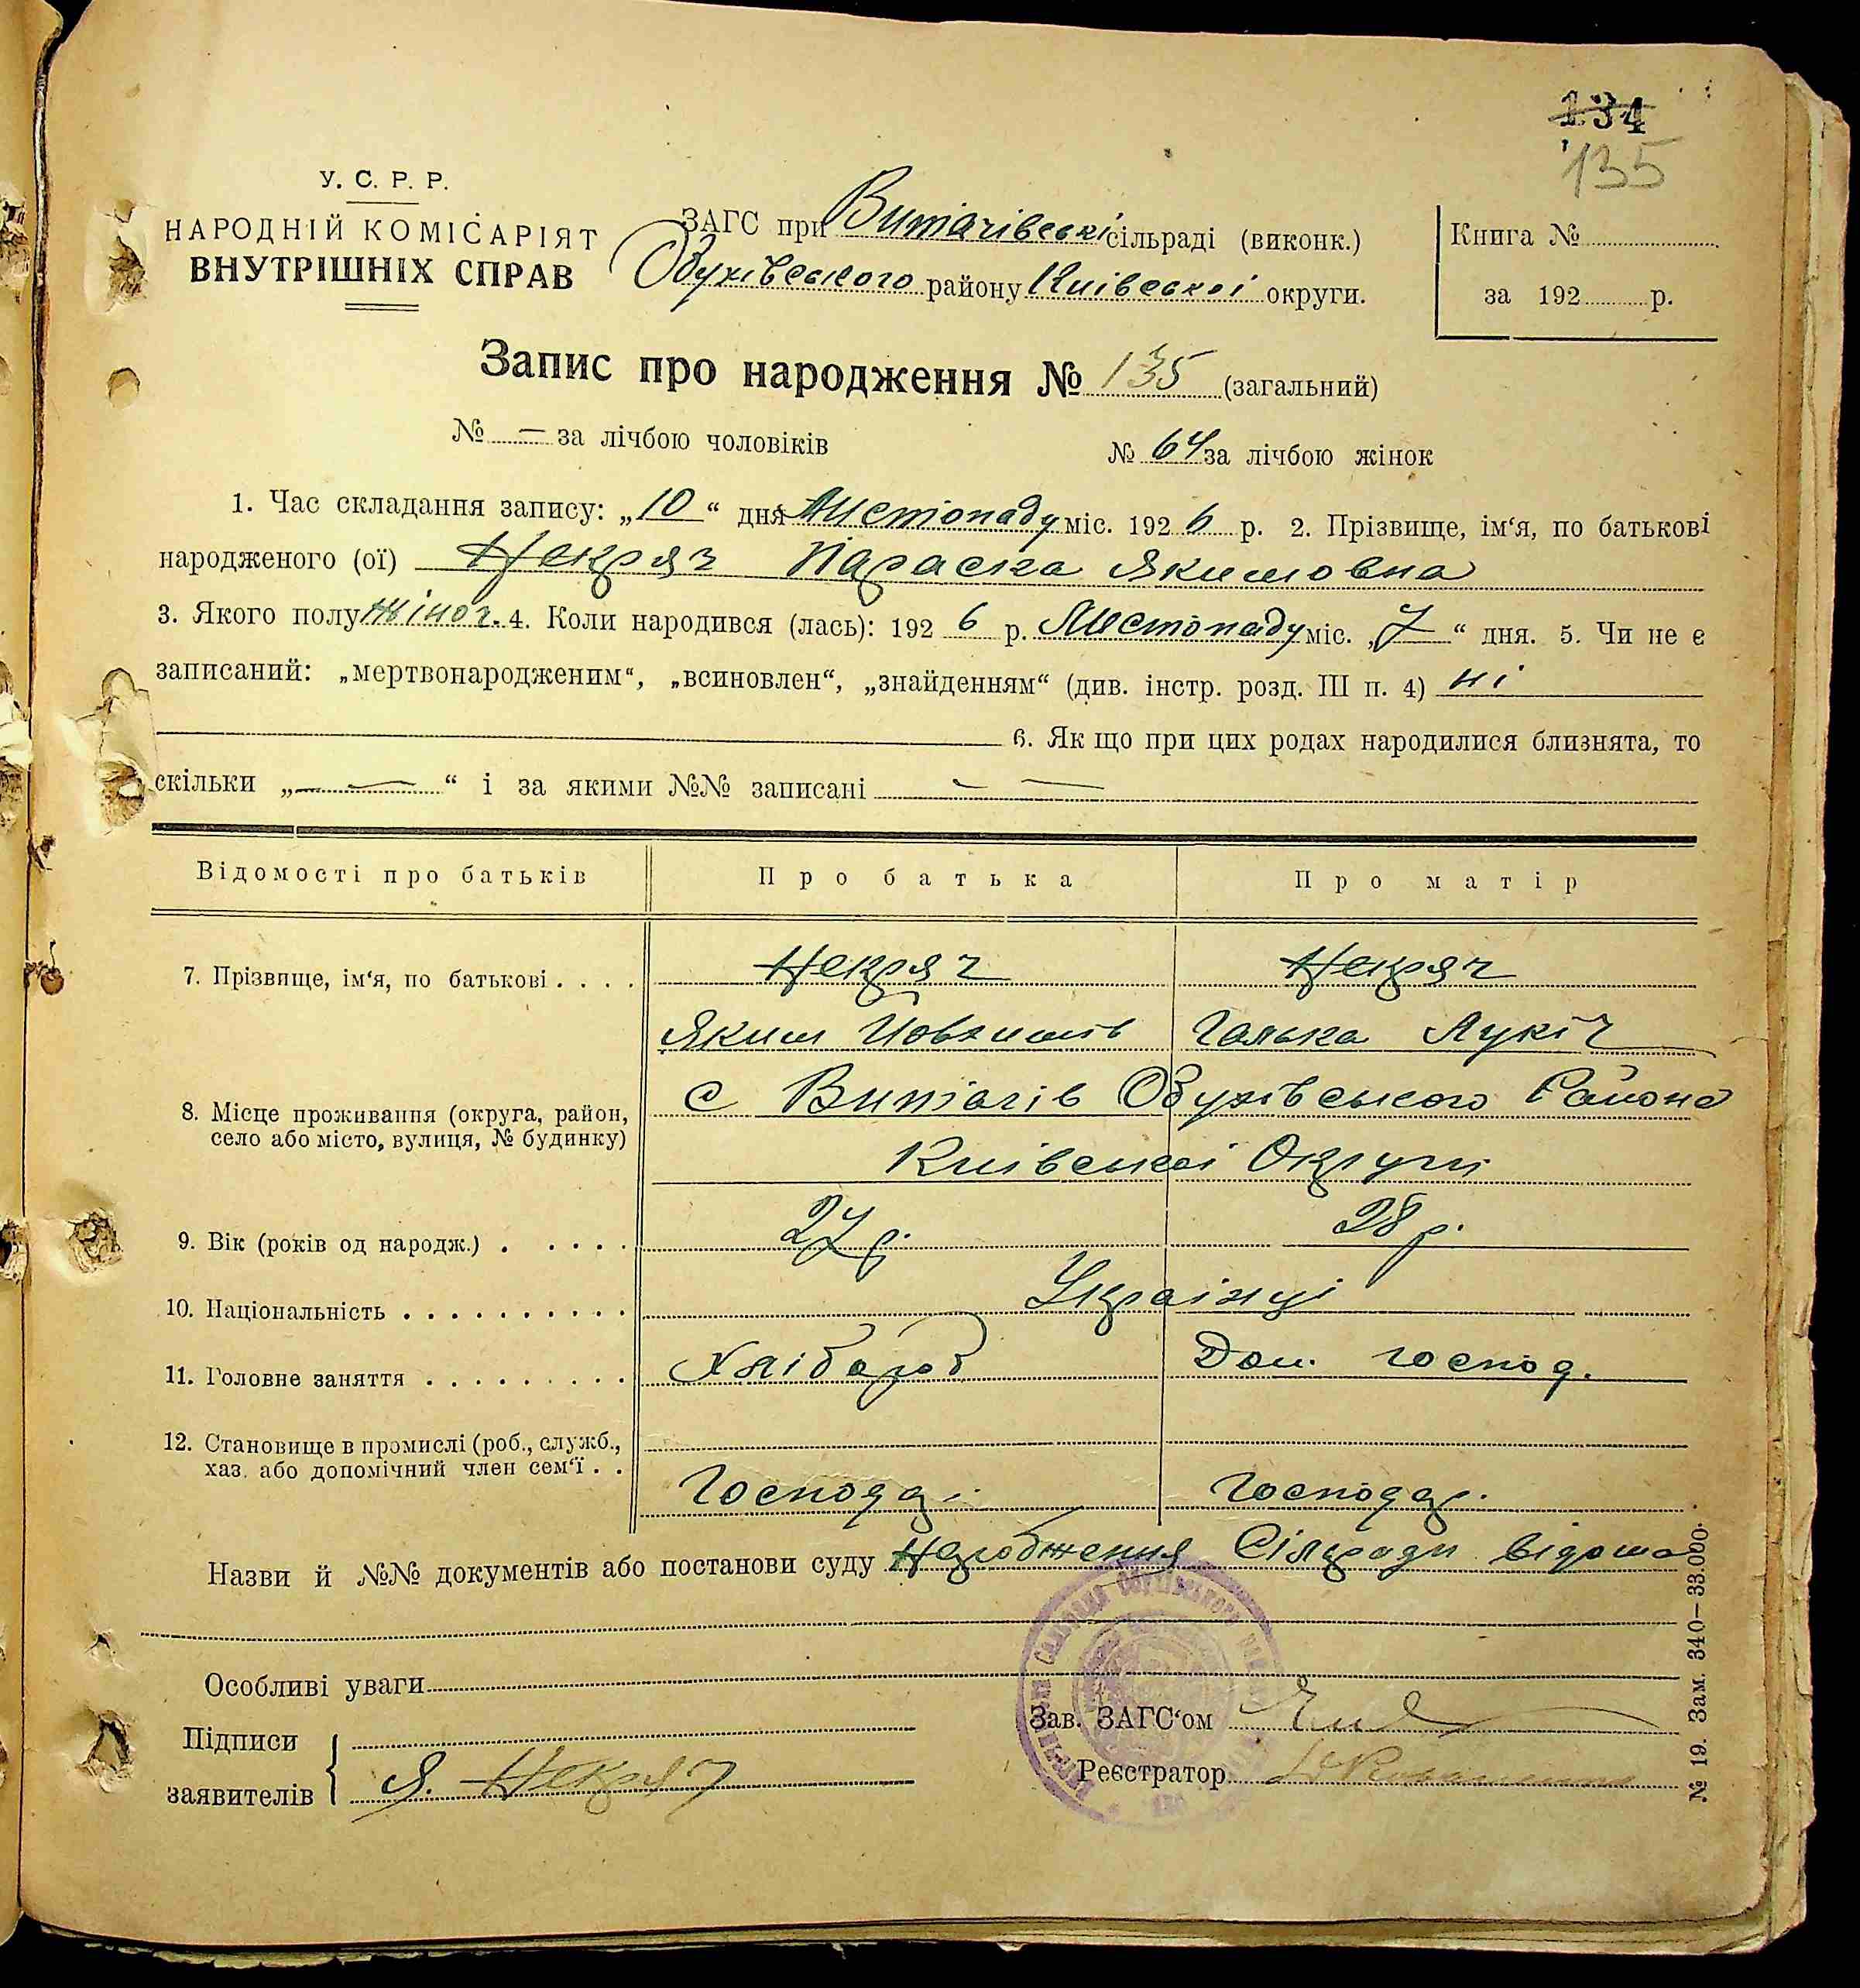 134
135
У. С. Р. Р.
НАРОДНІЙ КОМІСАРІЯТ
ВНУТРІШНІХ СПРАВ
ЗАГС при Витачівські сільраді (виконк.)
Обухівського району Київської округи.
Книга №
за 192 р.
Запис про народження № 135 (загальний)
№ — за лічбою чоловіків № 64 за лічбою жінок
1. Час складання запису: „10“ дня Листопаду міс. 1926 р. 2. Прізвище, ім‘я, по батькові
народженого (ої) Некряч Параска Якимовна
3. Якого полу жіноч. 4. Коли народився (лась): 1926 р. Листопаду міс. „7“ дня. 5. Чи не є
записаний: „мертвонародженим“, „всиновлен“, „знайденням“ (див. інстр. розд. III п. 4) ні
6. Як що при цих родах народилися близнята, то
скільки „—“ і за якими №№ записані —
Відомості про батьків Про батька Про матір
7. Прізвище, ім‘я, по батькові . . . . Некряч Некряч
Яким Галька Лукіч
8. Місце проживання (округа, район, село або місто, вулиця, № будинку) с Витачів Обухівського Района
Київської Округи
9. Вік (років од народж.) . . . . . 27 р. 28 р.
10. Національність . . . . . . . . . . Українці
11. Головне заняття . . . . . . . . . Хлібороб Дом. господ.
12. Становище в промислі (роб., служб., хаз. або допомічний член сем‘ї . .
Господар. Господар.
Назви й №№ документів або постанови суду Народження Сілради відомо
Особливі уваги
Підписи
заявителів Я. Некряч
Зав. ЗАГС‘ом
Реєстратор
№ 19. Зам. 340—33.000.